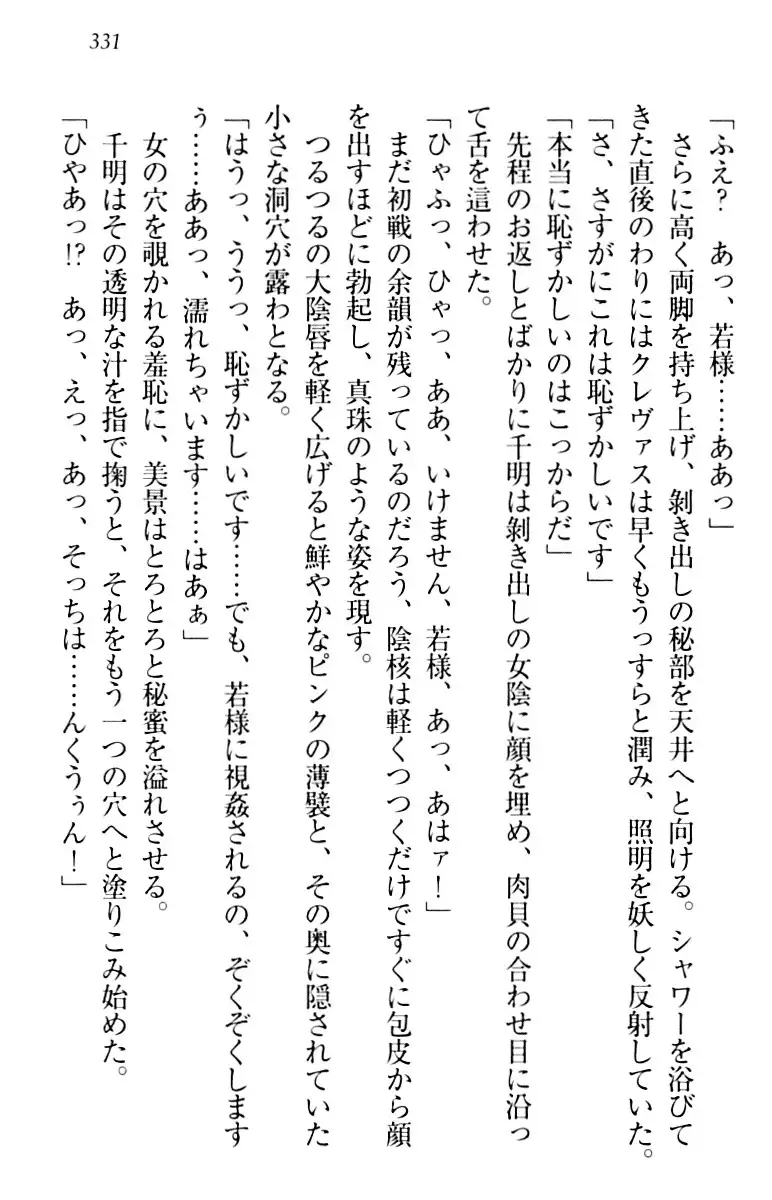 331
「ふえ？　あっ、若様……ああっ」
　さらに高く両脚を持ち上げ、剝き出しの秘部を天井へと向ける。シャワーを浴びて
きた直後のわりにはクレヴァスは早くもうっすらと潤み、照明を妖しく反射していた。
「さ、さすがにこれは恥ずかしいです」
「本当に恥ずかしいのはこっからだ」
　先程のお返しとばかりに千明は剝き出しの女陰に顔を埋め、肉貝の合わせ目に沿っ
て舌を這わせた。
「ひゃふっ、ひゃっ、ああ、いけません、若様、あっ、あはァ！」
　まだ初戦の余韻が残っているのだろう、陰核は軽くつつくだけですぐに包皮から顔
を出すほどに勃起し、真珠のような姿を現す。
　つるつるの大陰唇を軽く広げると鮮やかなピンクの薄襞と、その奥に隠されていた
小さな洞穴が露わとなる。
「はうっ、ううっ、恥ずかしいです……でも、若様に視姦されるの、ぞくぞくします
ぅ……ああっ、濡れちゃいます……はあぁ」
　女の穴を覗かれる羞恥に、美景はとろとろと秘蜜を溢れさせる。
　千明はその透明な汁を指で掬うと、それをもう一つの穴へと塗りこみ始めた。
「ひやあっ!?　あっ、えっ、あっ、そっちは……んくうぅん！」